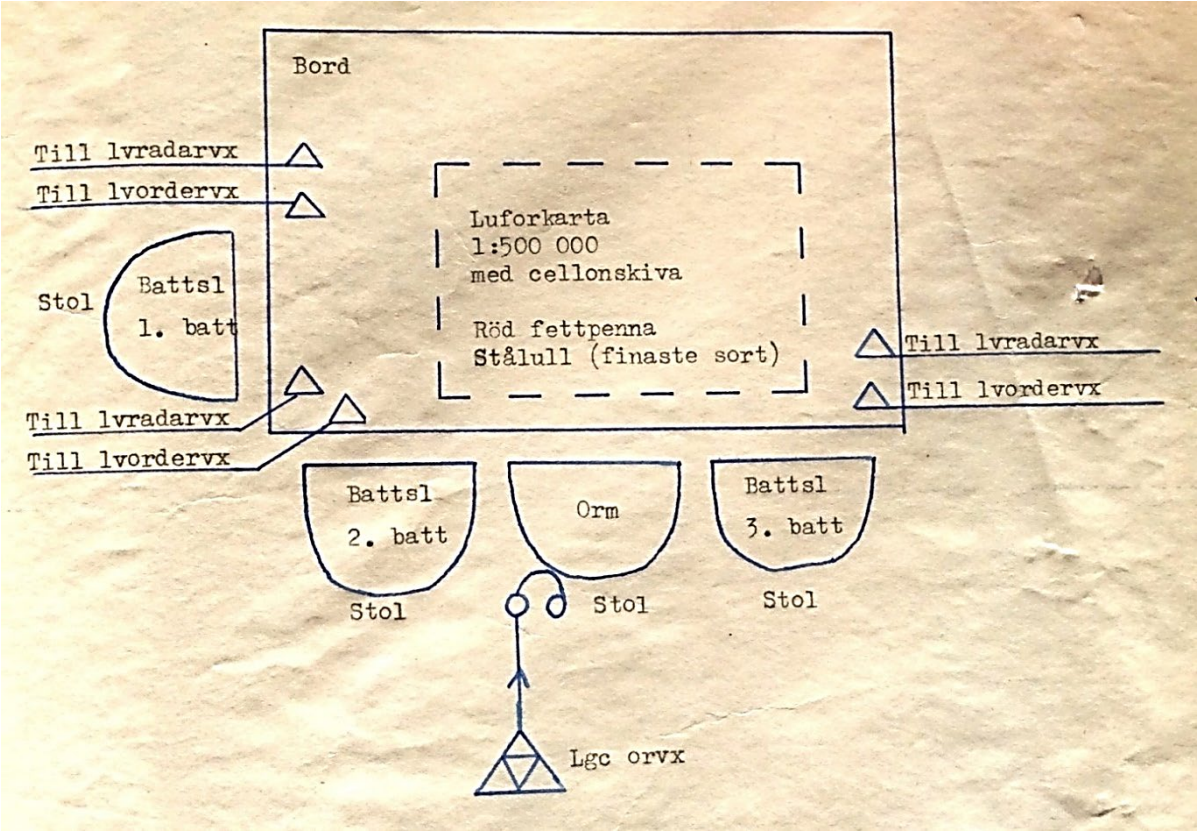 Bord
Till lvradarvx
Till lvordervx
Luforkarta
1:500 000
med cellonskiva
Röd fettpenna
Stålull (finaste sort)
Stol
Battsl
1. batt
Till lvradarvx
Till lvordervx
Till lvradarvx
Till lvordervx
Battsl
2. batt
Stol
Orm
Stol
Battsl
3. batt
Stol
Lgc orvx